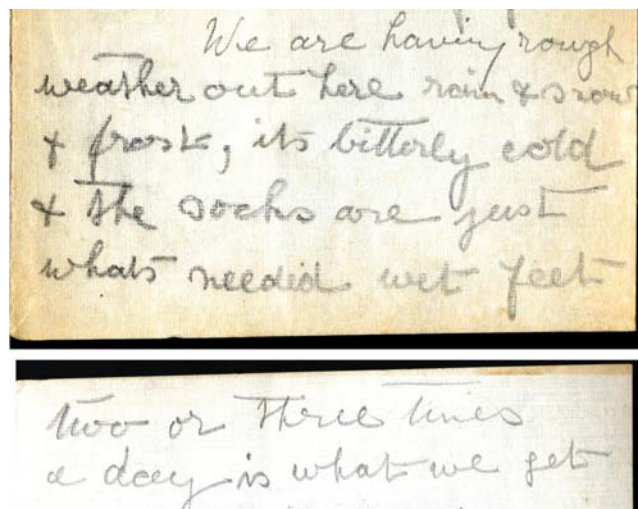 We are having rough
weather out here rain & snow
& frost, its bitterly cold
& the socks are just
whats needed wet feet
two or three times
a day is what we get